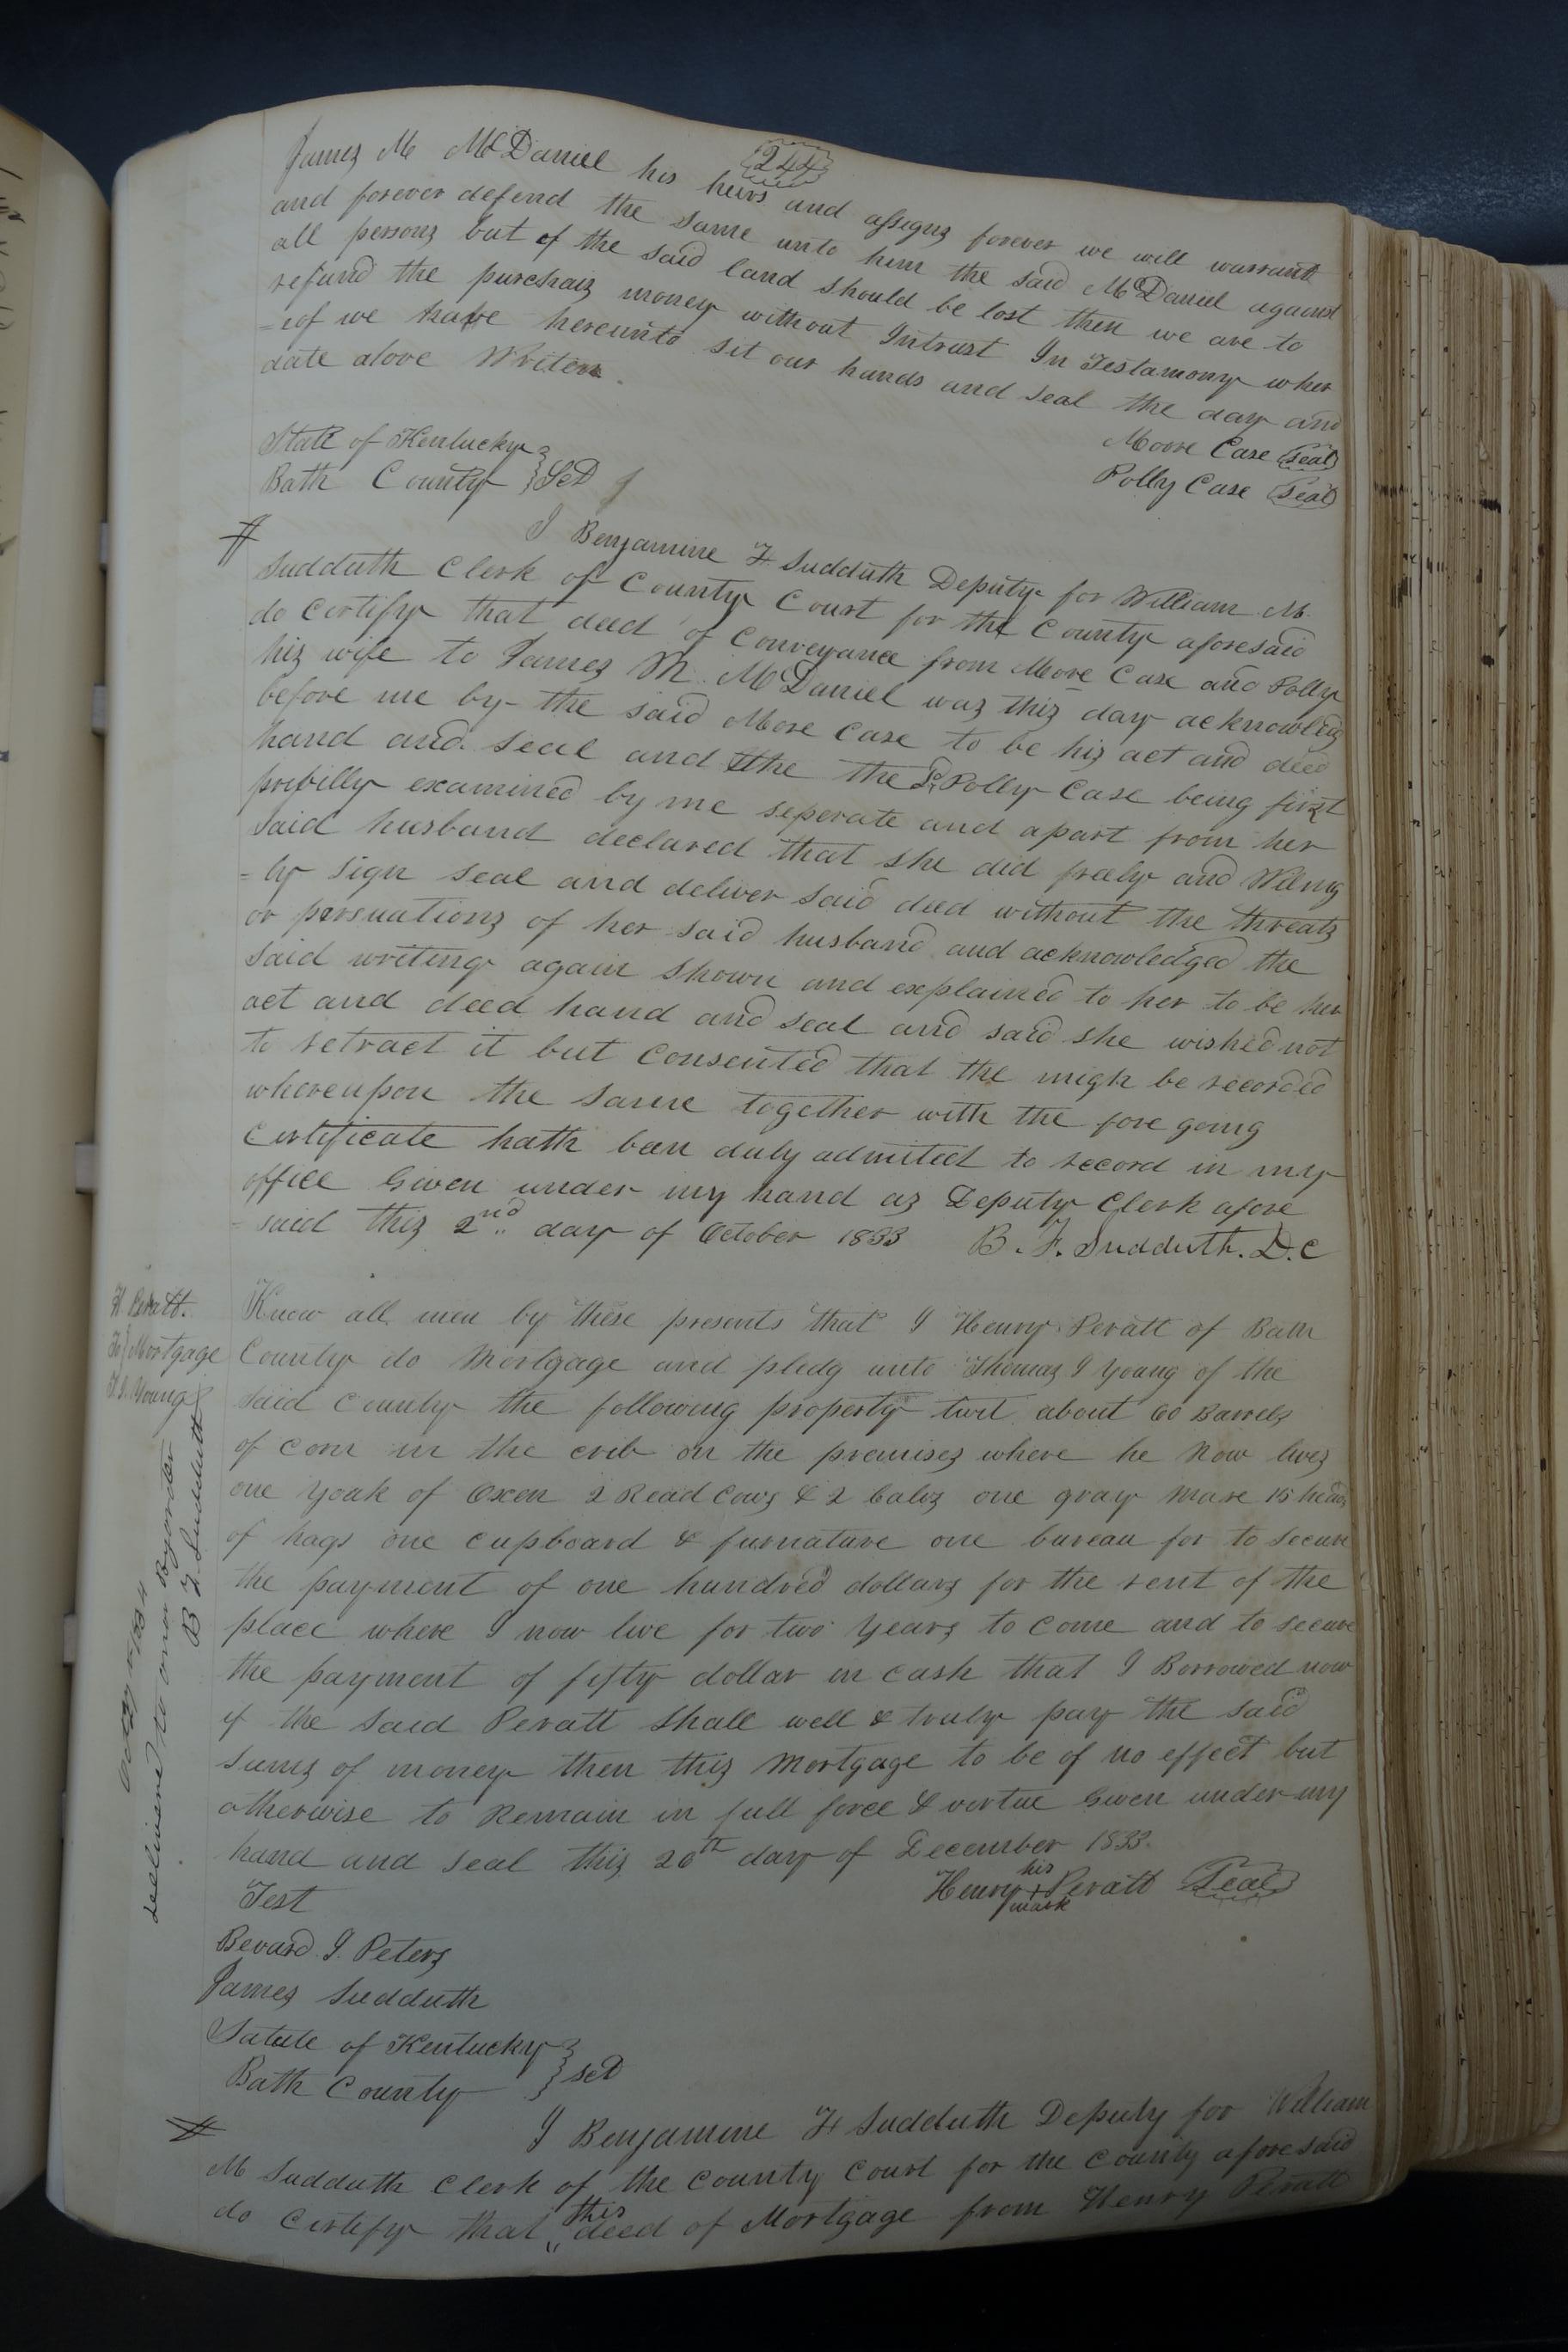 244
James M McDaniel his heirs and assigns forever we will warrant
and forever defend the same unto him the said McDaniel against
all persons but if the said land should be lost then we are to
refund the purchais money without Intrust In Testamony wher
=eof we have hereunto set our hands and seal the day and
date above Writen.
Moore Case (Seal)
Polly Case (Seal)
State of Kentucky }
Bath County } Sct
I Benjamine F Sudduth Deputy for William M.
Sudduth Clerk of County Court for the County aforesaid
do certify that deed of Conveyance from Moore Case and Polly
his wife to James M. McDaniel was this day acknowledg
before me by the said More Case to be his act and deed
hand and seal and the the sd Polly Case being first
privilly examined by me seperate and apart from her
said husband declared that she did freely and WilING
=ly sign seal and deliver said deed without the threats
or persuations of her said husband and acknowledged the
said writing again shown and explained to her to be her
act and deed hand and seal and said she wished not
to retract it but consented that the migh be recorded
whereupon the same together with the fore going
certificate hath been duly admited to record in my
office Given under my hand as Deputy Clerk afore
=said this 2nd day of October 1833 B. F. Sudduth. D. C
H. Peratt.
To } Mortgage
T. I. Young
Know all men by these presents that I Henry Peratt of Bath
County do Mortgage and pledg unto Thomas I Young of the
said County the following property twit about 60 Barrels
of corn in the crib on the premises where he now lives
one yoak of Oxen 2 Read Cows & 2 Calvs one gray mare 15 head
of hogs one cupboard & furnature one bureau for to secure
the payment of one hundred dollars for the rent of the
place where I now live for two years to come and to secure
the payment of fifty dollar in cash that I Borrowed now
if the said Peratt shall well & truly pay the said
sums of money then this Mortgage to be of no effect but
otherwise to Remain in full force & vertue Given under my
hand and seal this 20th day of December 1833.
Henry his + mark Peratt (Seal)
Test
Bevard I. Peters
James Sudduth
Satate of Kentucky }
Bath County } sct
I Benjamine F Sudduth Deputy for William
M Sudduth Clerk of the County Court for the County aforesaid
do certify that this deed of Mortgage from Henry Peratt
1834
delivered to by order
B F Sudduth